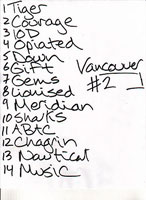 1 Tiger
2 Courage
3 IOD
4 Opiated
5 Down
6 Gift
7 Gems
8 Liaised
9 Meridian
10 Sharks
11 ABTC
12 Chagrin
13 Nautical
14 Music
Vancouver
#2